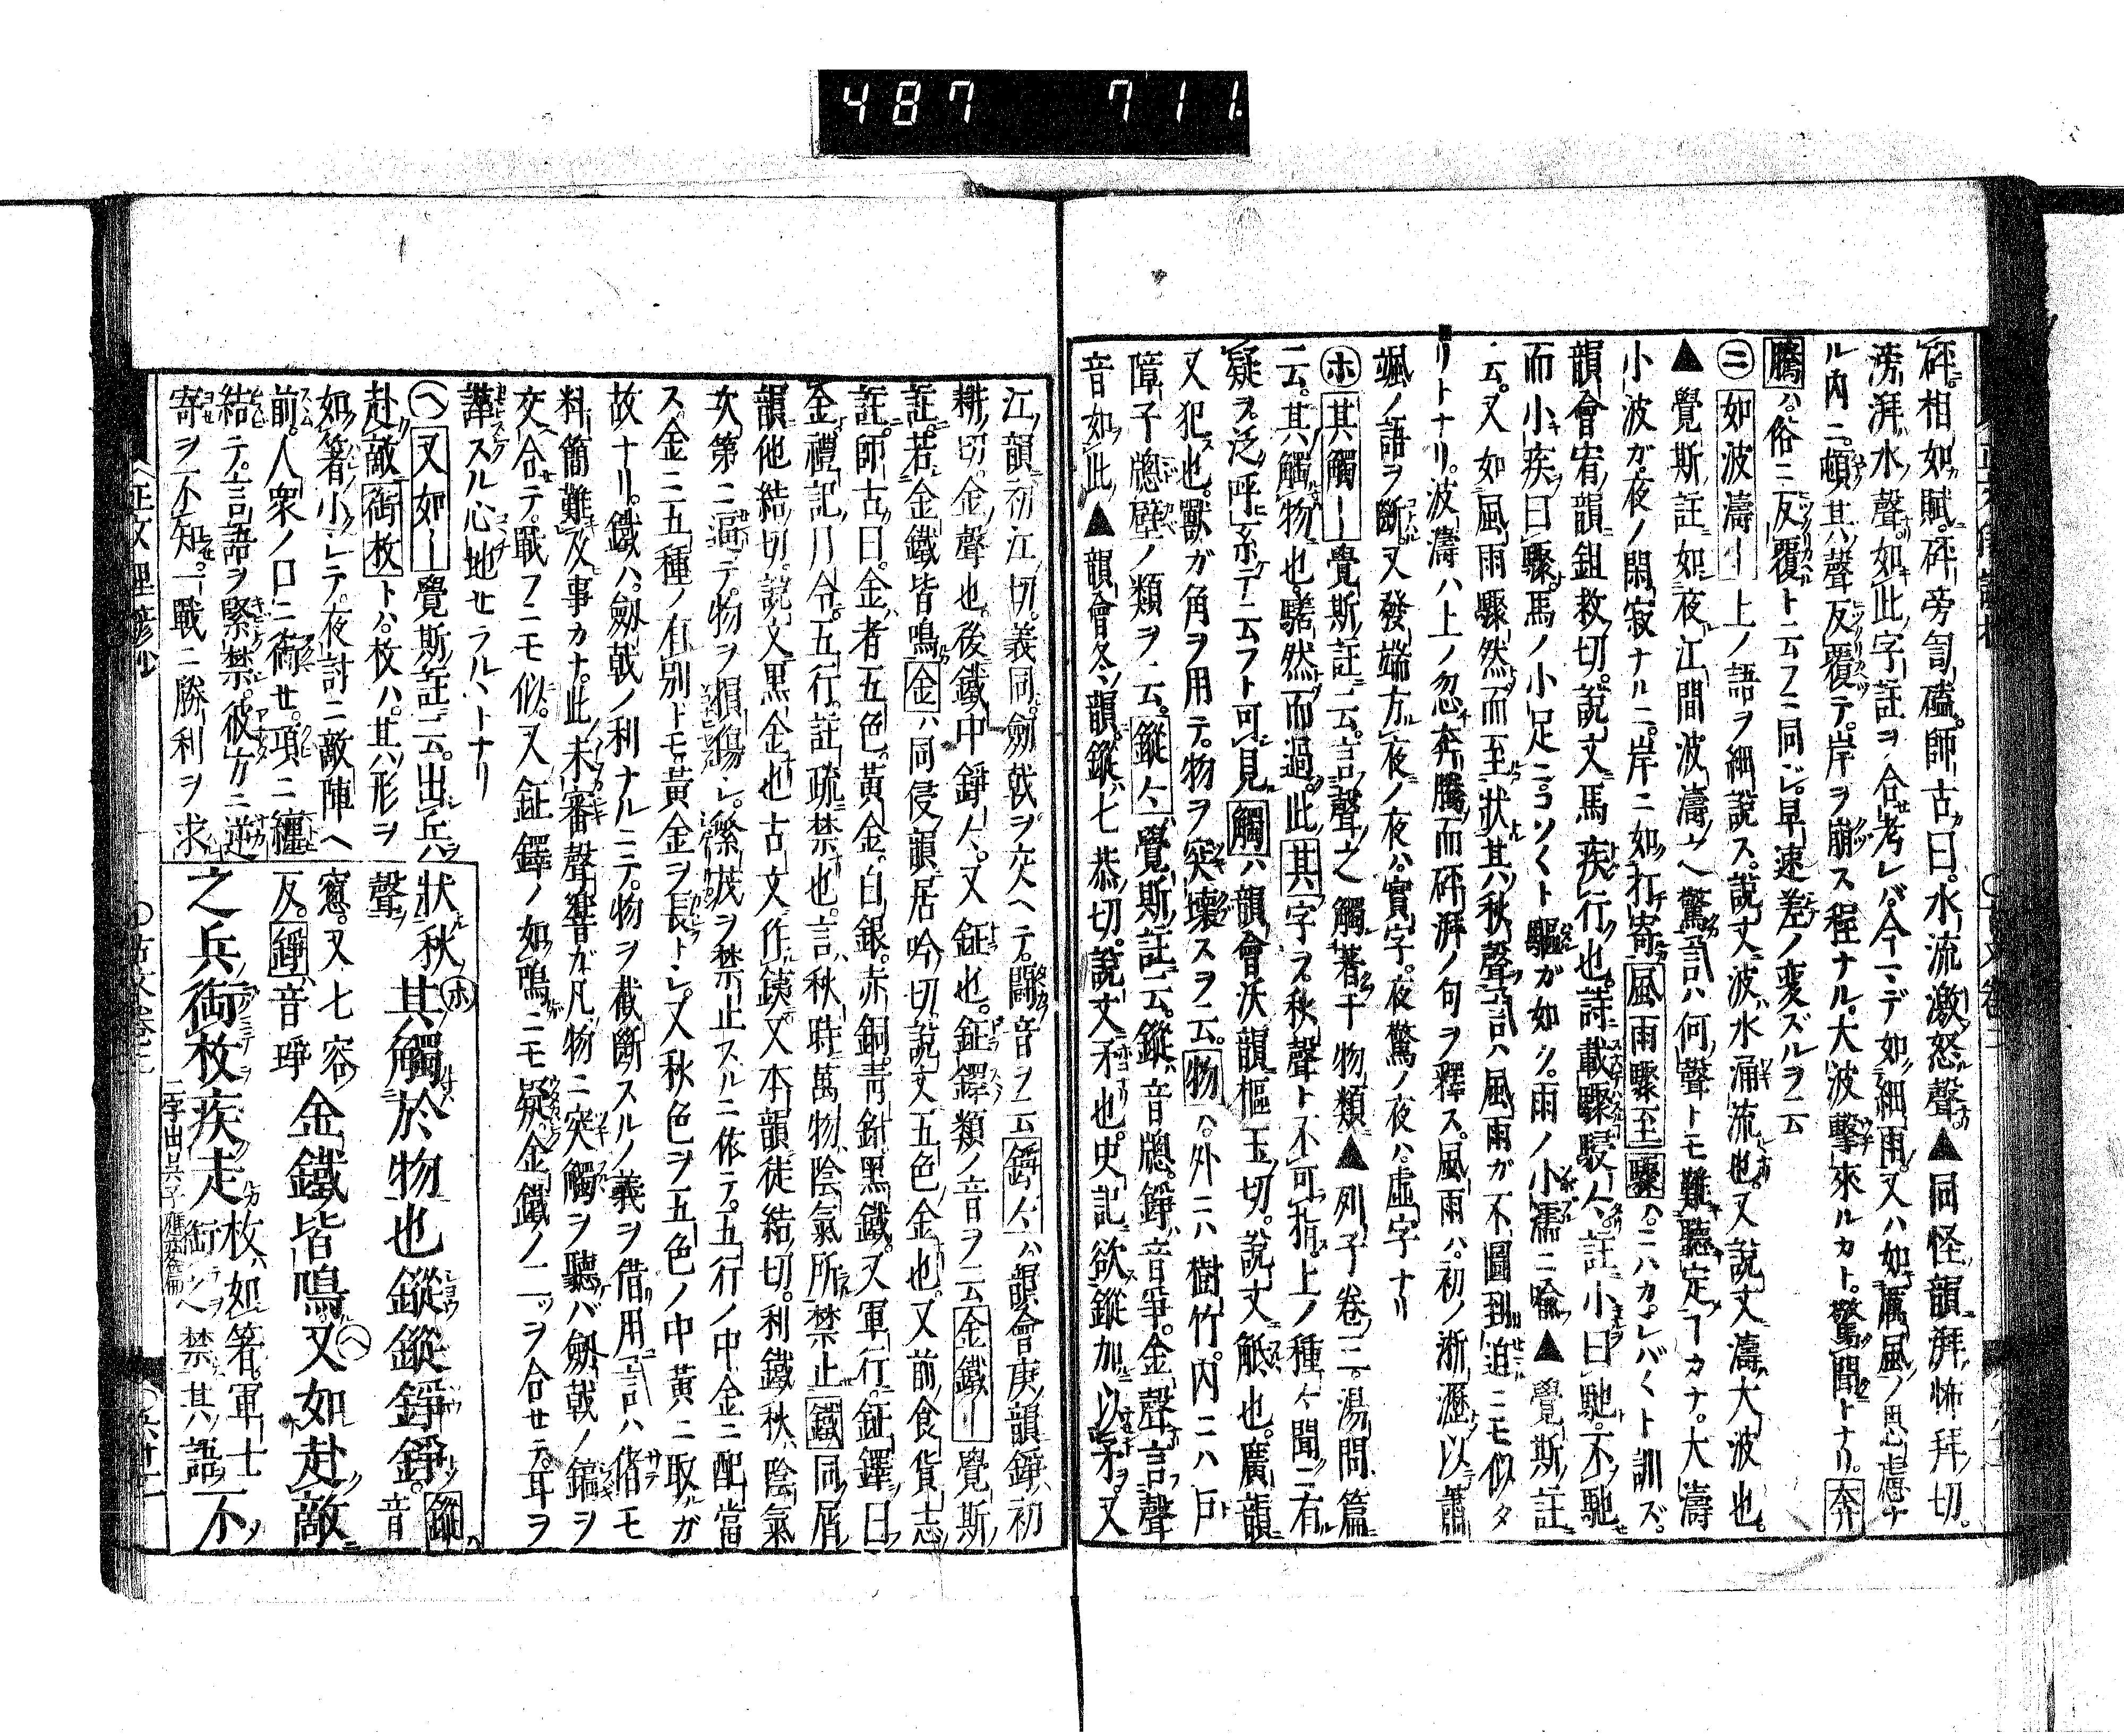 487 711
砰相如賦砰旁訇礚師古曰水流激怒聲▲同怪韻湃怖拜切
滂湃水聲如此字註ヲ合考レバ今一デ如細雨又ハ如厲風ノ思慮ナ
ル内ニ頓其聲反覆テ岸ヲ崩ス程ナル大波擊來ルカト驚聞トナリ奔
騰ハ俗ニ反覆ト云フニ同ジ早速差ノ変ズルヲ云
㊁如波濤一上ノ語ヲ細說ス說文波水涌流也又說文濤大波也
▲覺斯註如夜江間波濤ウヘ驚言ハ何聲トモ難聽定ヿカナ大濤
小波ガ夜ノ閑寂ナルニ岸ニ如打寄風雨驟至驟ハニハカシバ〱ト訓ズ
韻會宥韻鉏救切說文馬疾行也詩載驟駸人註小曰馳不馳
而小疾曰驟馬ノ小足ニコソ〱ト驅ガ如ク雨ノ小濡ニ喩▲覺斯註
云又如風雨驟然而至狀其秋聲言ハ風雨ガ不圖到迫ニモ似タ
リトナリ波濤ハ上ノ忽奔騰而砰湃ノ句ヲ釋ス風雨ハ初ノ淅瀝以蕭
颯ノ語ヲ斷又發端方夜ノ夜ハ實字夜驚ノ夜ハ虛字ナリ
㋭其觸一覺斯註云言聲之觸著于物類▲列子卷二湯問篇
云其觸物也騞然而過此其字ヲ秋聲ト不可指上ノ種々聞ニ有
疑ヲ泛呼系テ云フト可見觸ハ韻會沃韻樞玉切說文觝也廣韻
又犯也獸ガ角ヲ用テ物ヲ突壞スヲ云物ハ外ニハ樹竹內ニハ戶
障子牕壁ノ類ヲ云鏦々一覺斯註云鏦音牕錚音爭金聲言聲
音如此▲韻會冬韻鏦七恭切說文矛也史記欲鏦加以矛又
江韻初江切義同劔戟ヲ交ヘテ鬪音ヲ云錚々ハ韻會庚韻錚初
耕切金聲也後鐵中錚々又鉦也鉦鐸類ノ音ヲ云金鐵一覺斯
註若金鐵皆鳴金ハ同侵韻居吟切說文五色金也又前食貨志
註師古曰金者五色黃金白銀赤銅靑鉛黑鐵又軍行鉦鐸曰
金禮記月令五行註疏禁也言秋時萬物陰氣所禁止鐵同屑
韻他結切說文黑金也古文作銕又本韻徒結切利鐵秋陰氣
次第ニ逼テ物ヲ損傷シ繁茂ヲ禁止スルニ依テ五行ノ中金ニ配當
ス金ニ五種ノ有別トモ黃金ヲ長トシ又秋色ヲ五色ノ中黃ニ取ルガ
故ナリ鐵ハ劔戟ノ利ナルニテ物ヲ截斷スルノ義ヲ借用言ハ偖モ
料簡難及事カナ此未審聲響ガ凡物ニ突觸ヲ聽バ劔戟ノ鎬ヲ
交合テ戰フニモ似又鉦鐸ノ如鳴ニモ疑金鐵ノ二ッヲ合セテ耳ヲ
譁スル心地セラルヽトナリ
㋬又如一覺斯註云出兵
赴敵銜枚トハ枚ハ其形ヲ
如箸小シテ夜討ニ敵陣ヘ
前人衆ノ口ニ銜セ項ニ纏
結テ言語ヲ緊禁彼方ニ逆
寄ヲ不知一戰ニ勝利ヲ求
狀秋聲㋭其觸於物也鏦鏦錚錚鏦音
窻又七容反錚音琤金鐵皆鳴㋬又如赴敵
之兵銜枚疾走枚如箸軍士銜ヘ禁其語不